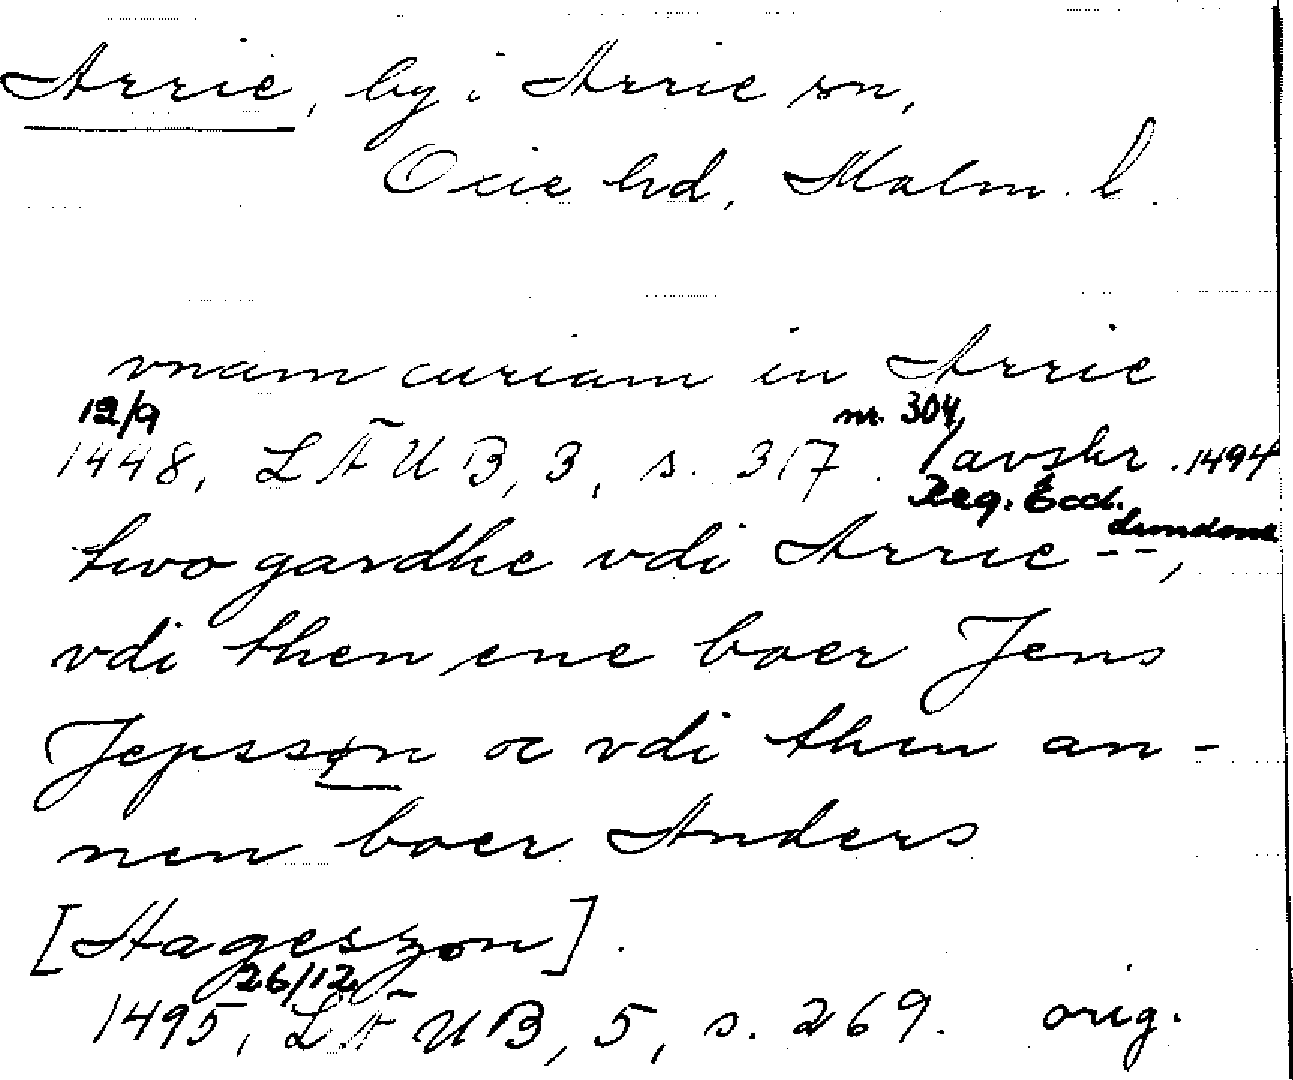 Arrie, by i Arrie sn,
Oxie hd, Malm. l.
vnam curiam in Arrie
12/9 nr. 304,
1448, LÄUB, 3, s. 317. /avskr. 1494
Reg. Eccl.
Lundens
two gardhe vdi Arrie --,
vdi then ene boer Jens
Jepsson oc vdi then an-
nen boer Anders
[Hageszon].
26/12
1495, LÄUB, 5, s. 269. orig.